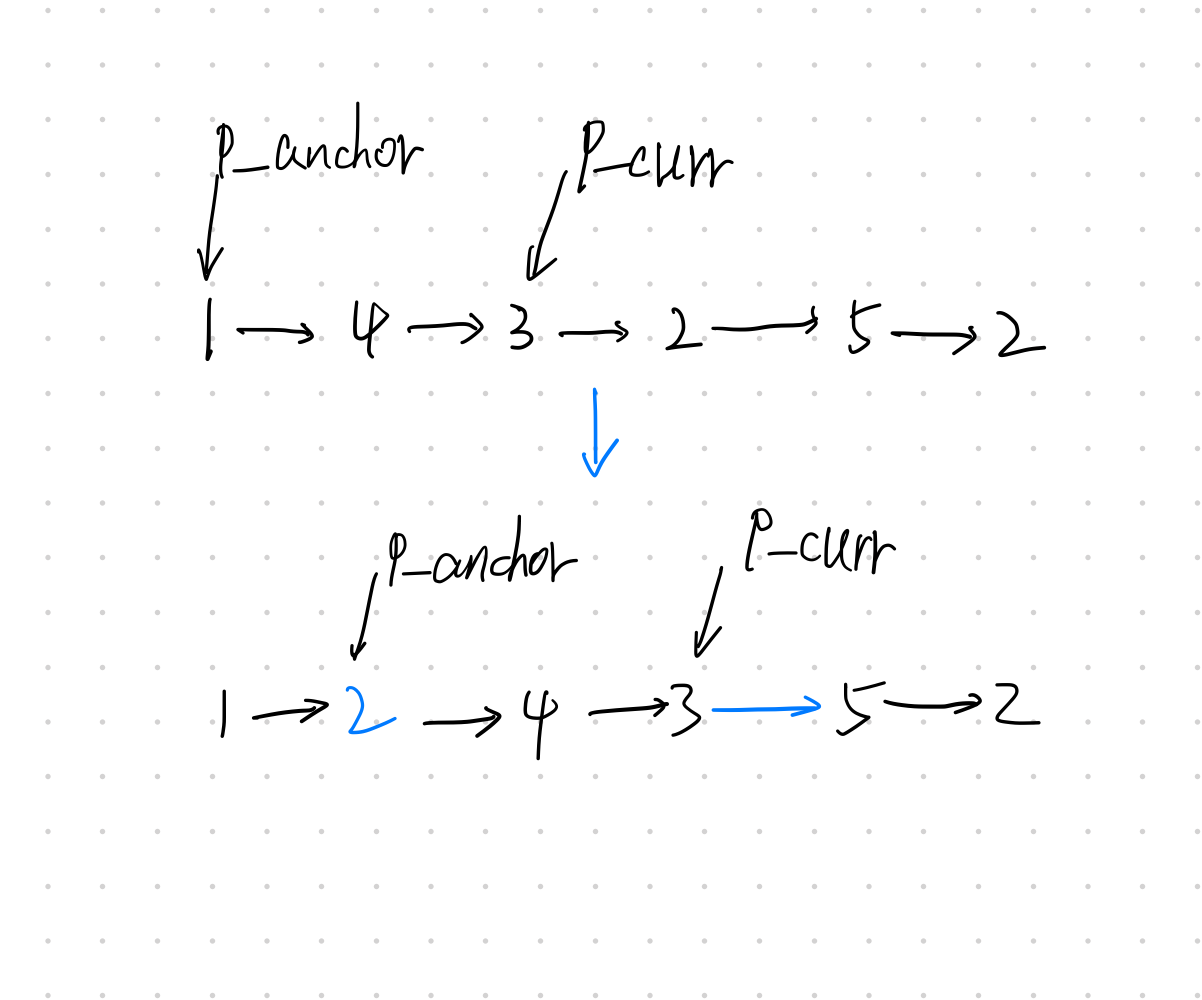 P_anchor P_curr
1 → 4 → 3 → 2 → 5 → 2
P_anchor P_curr
1 → 2 → 4 → 3 → 5 → 2